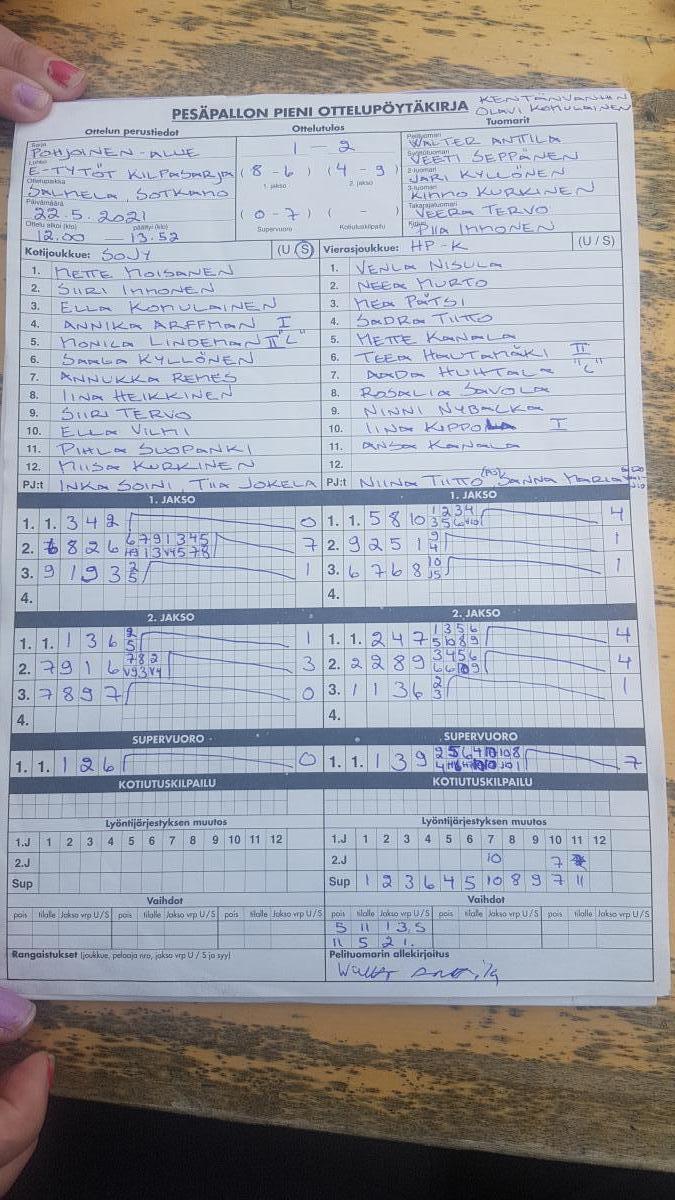 PESÄPALLON PIENI OTTELUPÖYTÄKIRJA
KENTÄNVANHIN
OLAVI KOMULAINEN
Ottelun perustiedot Ottelutulos Tuomarit
Sarja
POHJOINEN-ALUE
Lohko
E-TYTÖT KILPASARJA
Ottelupaikka
SALMELA, SOTKAMO
Päivämäärä
22.5.2021
Ottelu alkoi (klo) päättyi (klo)
12.00 13.52
1 - 2
(8 - 6) (4 - 9)
1. jakso 2. jakso
(0 - 7) ( - )
Supervuoro Kotiutuskilpailu
Pelituomari
WALTER ANTTILA
Syöttötuomari
VEETI SEPPÄNEN
2-tuomari
JARI KYLLÖNEN
3-tuomari
KIMMO KURKINEN
Takarajatuomari
VEERA TERVO
Kirjuri
PIIA IMMONEN
Kotijoukkue: SOJY (U/S) Vierasjoukkue: HP-K (U/S)
1. METTE MOISANEN 1. VENLA NISULA
2. SIIRI IMMONEN 2. NEEA MURTO
3. ELLA KOMULAINEN 3. MEA PÄTSI
4. ANNIKA ARFFMAN I 4. SADRA TIITTO
5. MONICA LINDEMAN II "C" 5. METTE KANALA
6. SAAGA KYLLÖNEN 6. TEEA HAUTAMÄKI II
7. ANNUKKA REMES 7. AADA HUHTALA "C"
8. IINA HEIKKINEN 8. ROSALIA SAVOLA
9. SIIRI TERVO 9. NINNI NYBACKA
10. ELLA VILMI 10. IINA KIPPO I
11. PIHLA SUOPANKI 11. ANSA KANALA
12. MIISA KURKINEN 12.
PJ:t INKA SOINI, TIIA JOKELA PJ:t NIINA TIITTO SANNA MARIA
1. JAKSO 1. JAKSO
1. 1. 3 4 2 0 1. 1. 5 8 10 4
2. 6 8 2 6 7 2. 9 2 5 1 1
3. 9 1 9 3 1 3. 6 7 6 8 1
4. 4.
2. JAKSO 2. JAKSO
1. 1. 1 3 6 1 1. 1. 2 4 7 4
2. 7 9 1 6 3 2. 2 2 8 9 4
3. 7 8 9 7 0 3. 1 1 3 6 1
4. 4.
SUPERVUORO SUPERVUORO
1. 1. 1 2 6 0 1. 1. 1 3 9 7
KOTIUTUSKILPAILU KOTIUTUSKILPAILU
Lyöntijärjestyksen muutos Lyöntijärjestyksen muutos
1.J 1 2 3 4 5 6 7 8 9 10 11 12 1.J 1 2 3 4 5 6 7 8 9 10 11 12
2.J 2.J 10 7
Sup Sup 1 2 3 6 4 5 10 8 9 7 11
Vaihdot Vaihdot
pois tilalle Jakso vrp U/S pois tilalle Jakso vrp U/S pois tilalle Jakso vrp U/S pois tilalle Jakso vrp U/S pois tilalle Jakso vrp U/S pois tilalle Jakso vrp U/S
5 11 1 3,5
11 5 2 1.
Rangaistukset (joukkue, pelaaja nro, jakso vrp U / S ja syy) Pelituomarin allekirjoitus
Walter Anttila